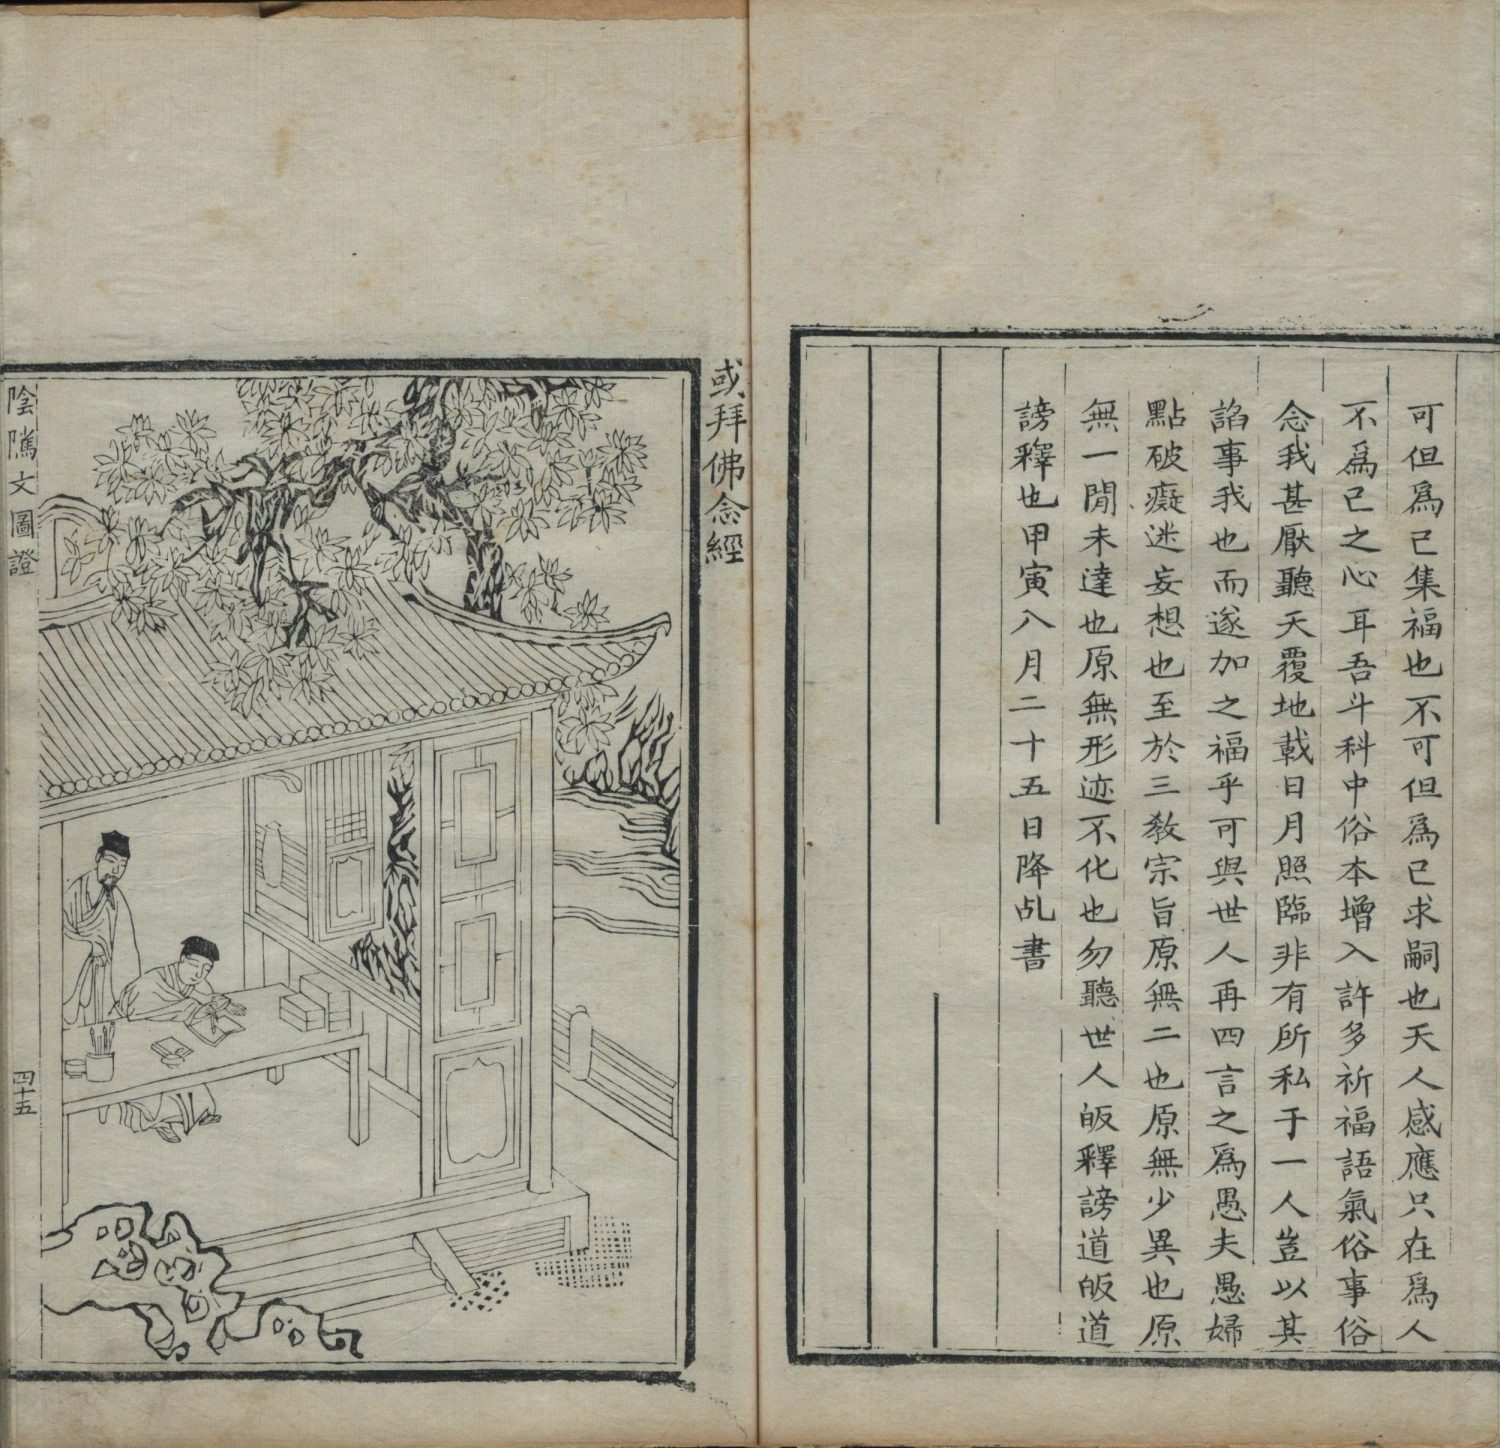 可但爲己集福也不可但爲己求嗣也天人感應只在爲人
不爲己之心耳吾斗科中俗本增入許多祈福語氣俗事俗
念我甚厭聽天覆地載日月照臨非有所私于一人豈以其
諂事我也而遂加之福乎可與世人再四言之爲愚夫愚婦
點破癡迷妄想也至於三教宗旨原無二也原無少異也原
無一閒未達也原無形迹不化也勿聽世人皈釋謗道皈道
謗釋也甲寅八月二十五日降乩書
或拜佛念經
陰隲文圖證
四十五